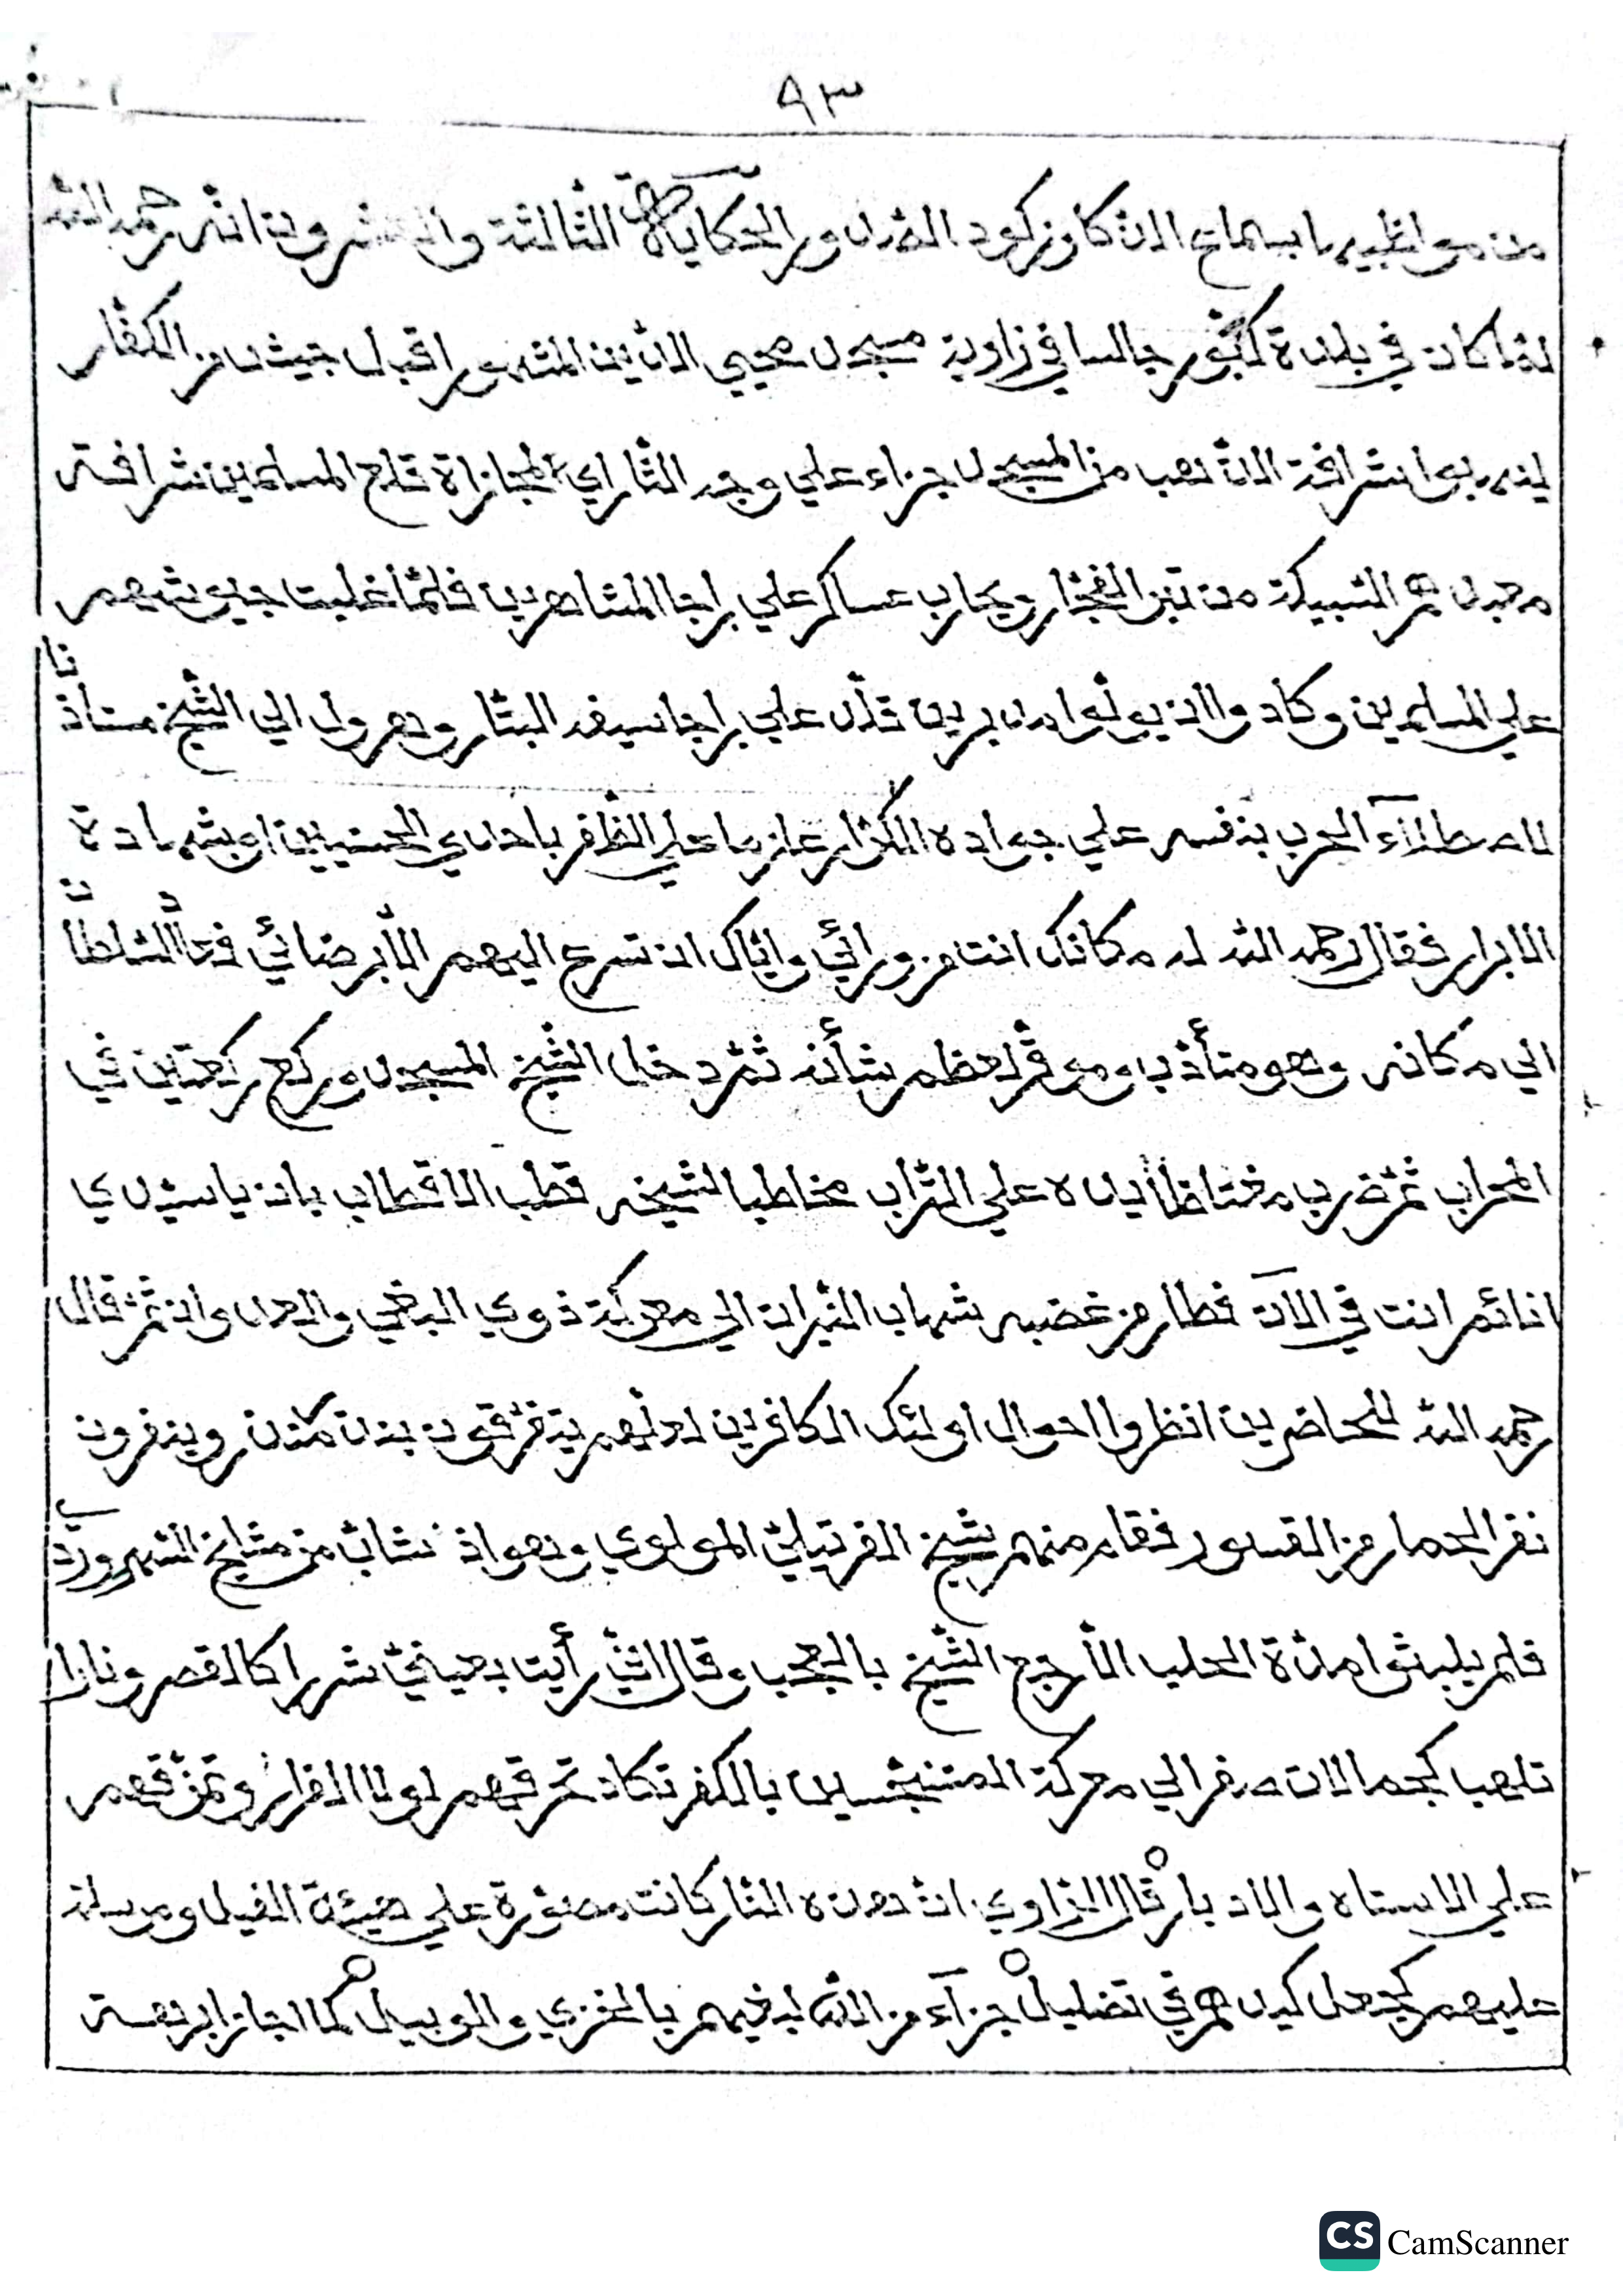 ٩٣
من مواظبيها بسماع الاذكار وركود الصدور الحكاية الثالثة والعشرون انه رحمه الله
لما كان في بلدة كنور جالسا في زاوية مسجد محيي الدين المشهور اقبل جيش من الكفار
لينهبوا شرافة الذهب من المسجد جزاء علي وجه الثار اي المجازاة قلع المسلمين شرافة
معبدهم السبيكة من تبر الفجار ويحارب عساكر علي راجا المشاهير بها فلما غلبت جيوشهم
علي المسلمين وكادوا ان يولوا مدبرين تقلد علي راجا سيفه البتار وهرول الي الشيخ مستأذنا
لاصطلاء الحرب بنفسه علي جواده الكرار عازما علي الظفر باحدي الحسنيين او بشهادة
الابرار فقال رحمه الله له مكانك انت من ورائي واياك ان تسرع اليهم الا برضائي فعاد السلطان
الي مكانه وهو متأدب وموقر لعظم شأنه ثم دخل الشيخ المسجد وركع ركعتين في
المحراب ثم ضرب مغتاظا يده علي التراب مخاطبا لشيخه قطب الاقطاب بان يا سيدي
انائم انت في الآن فطار من غضبه شهاب النيران الي معركة ذوي البغي والعدوان ثم قال
رحمه الله للحاضرين انظروا احوال اولئك الكافرين لعلهم يتفرقون بذن مذن وينفرون
نفر الحمار من القسور فقام منهم شيخ الفرتيلي المولوي وهو اذ شاب من مشايخ السهروردي
فلم يلبثوا مدة الحلب الا رجع الشيخ بالعجب وقال اني رأيت بعيني شررا كالقصر ونارا
تلهب كجمالات صفر الي معركة المتنجسين بالكفر تكاد تحرقهم لولا الفرار وتمزقهم
علي الاستاه والادبار قال الراوي ان هذه النار كانت مصورة علي هيئة الفيل ومرسلة
عليهم كجعل كيدهم في تضليل جزآء من الله لبغيهم بالخزي والوبيل كما اجاز ابرهة
CS CamScanner